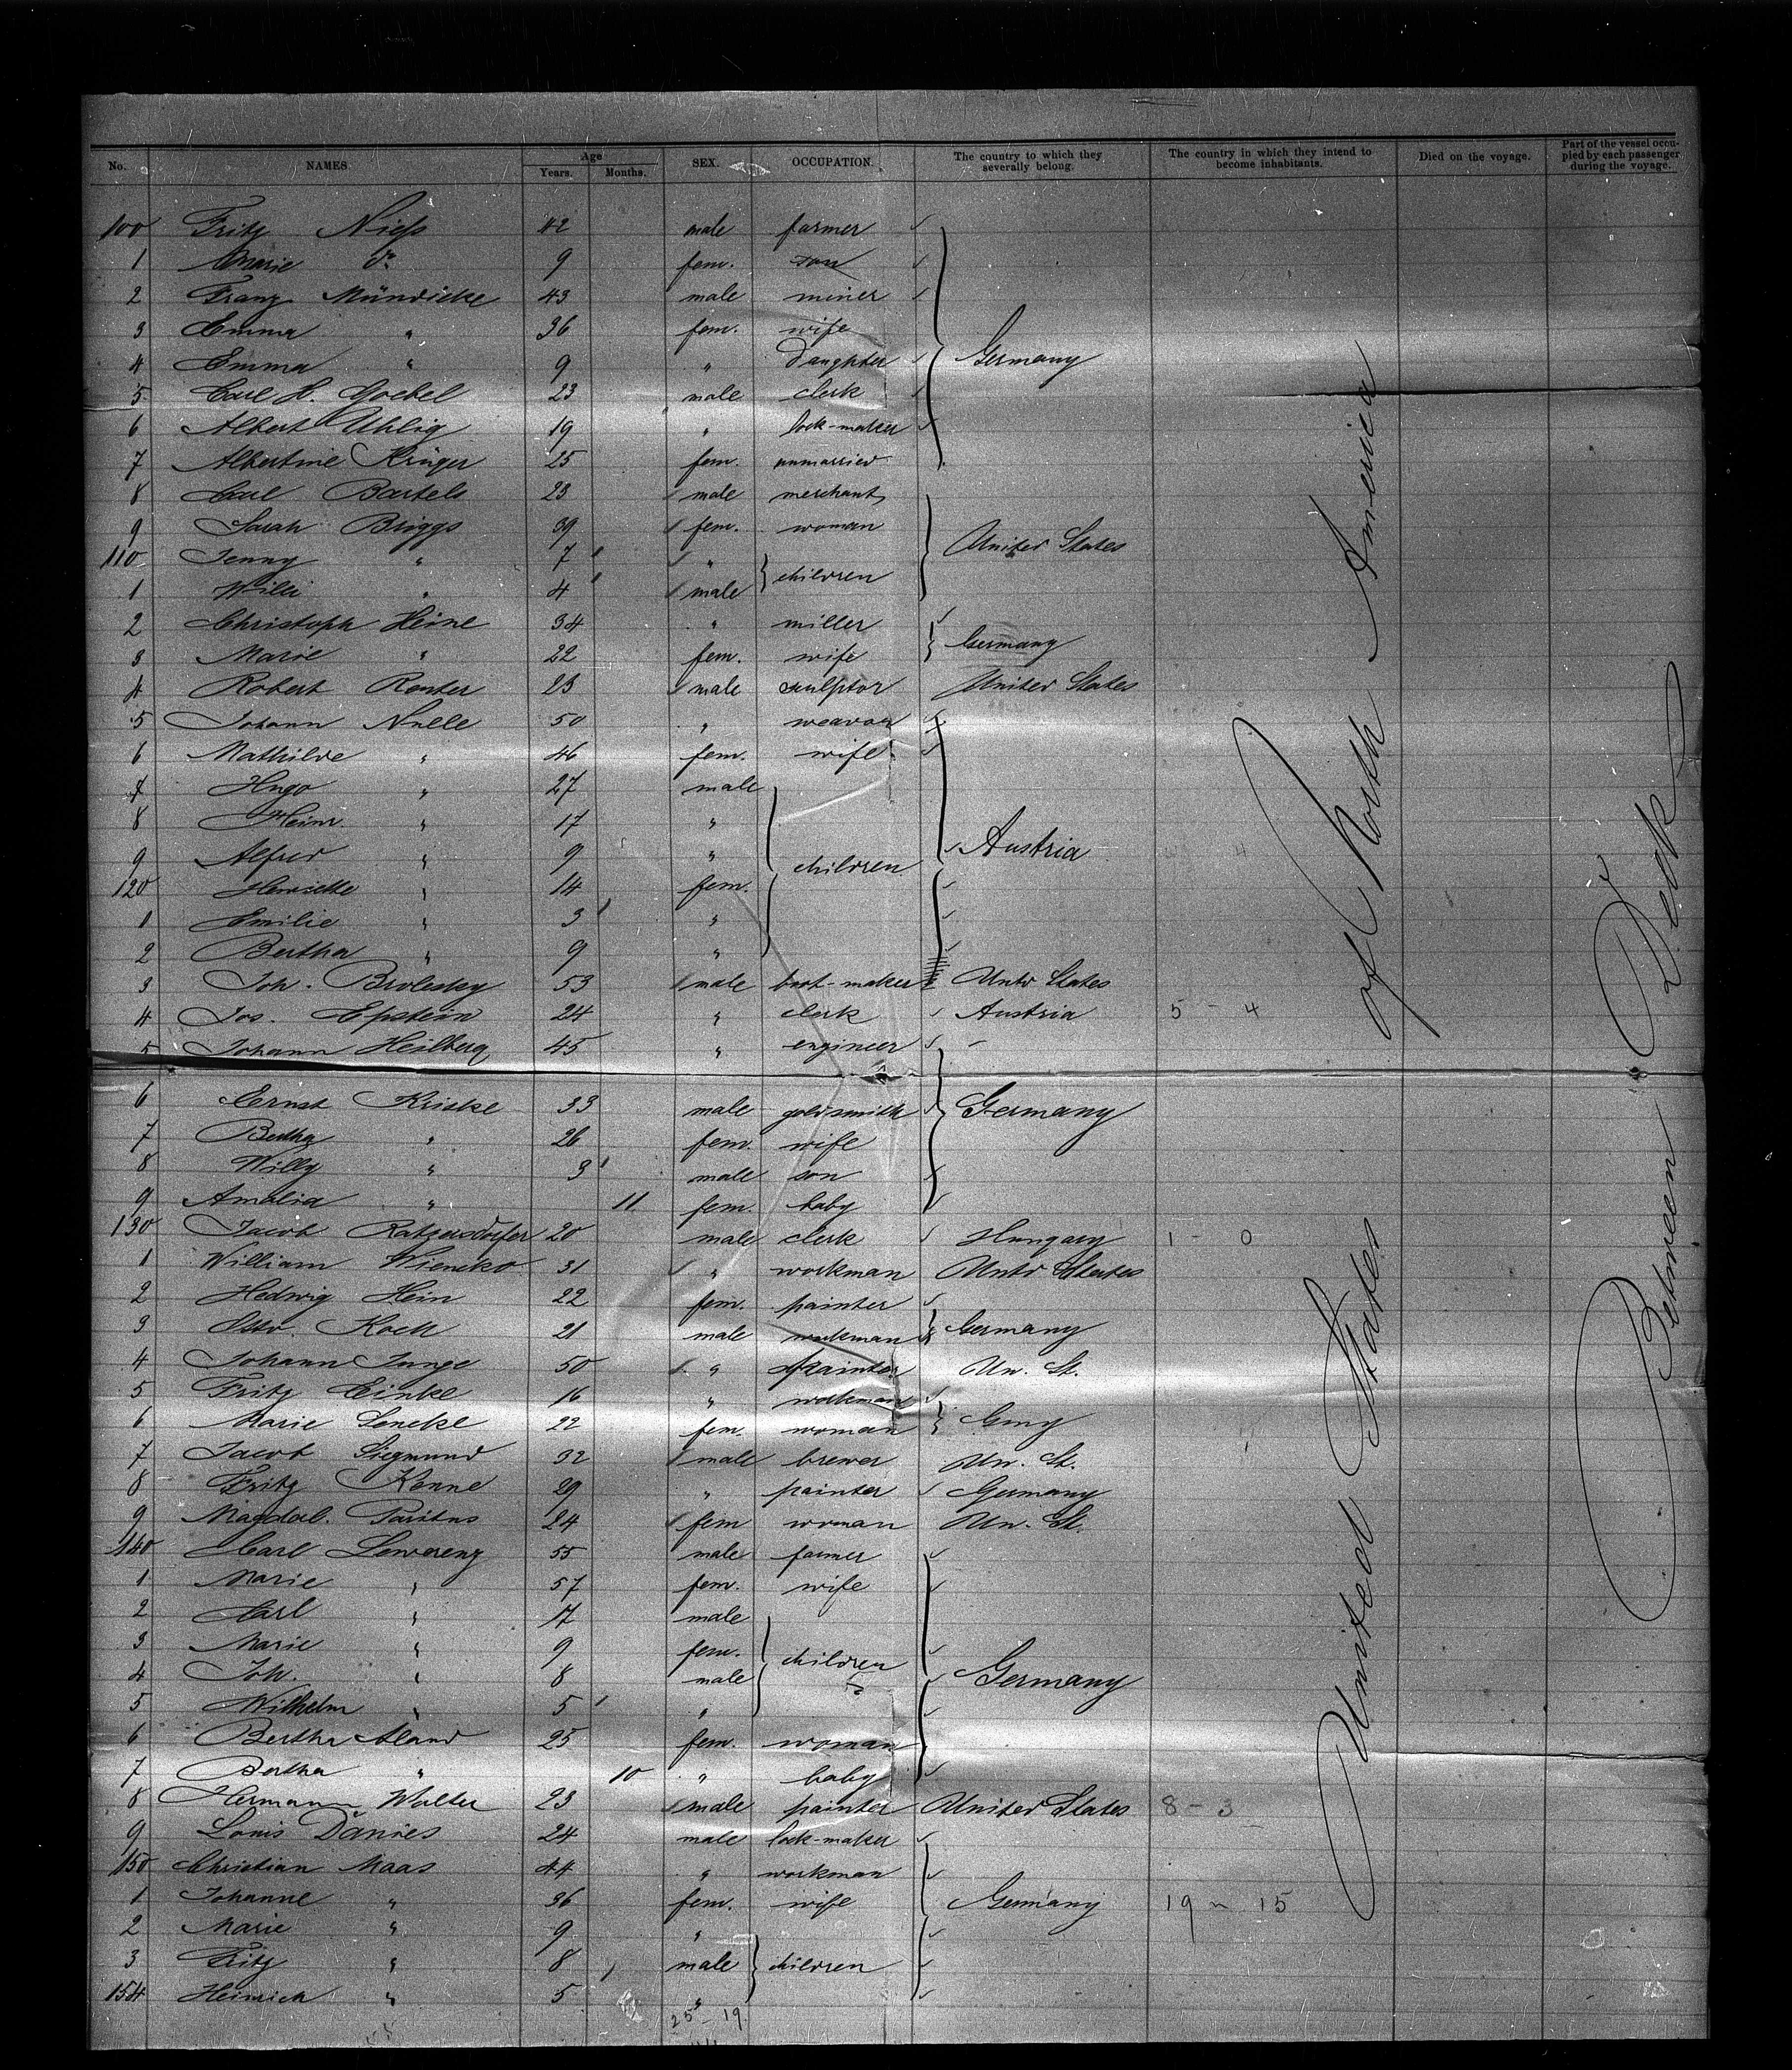 No. NAMES. Age Years. Months. SEX. OCCUPATION. The country to which they severally belong. The country in which they intend to become inhabitants. Died on the voyage. Part of the vessel occupied by each passenger during the voyage.
100 Fritz Niess 42 male farmer
1 Marie do 9 fem. son
2 Franz Mündicke 43 male miner
3 Emma " 36 fem. wife
4 Emma " 9 " daughter Germany
5 Carl H. Goebel 23 male clerk
6 Albert Uhlig 19 " lock-maker
7 Albertine Krüger 25 fem. unmarried
8 Carl Bartels 23 male merchant
9 Sarah Briggs 39 fem. woman United States
110 Jenny " 7 " children
1 Willi " 4 male
2 Christoph Heine 34 " miller
3 Marie " 22 fem. wife Germany
4 Robert Reuter 23 male sculptor United States
5 Johann Nulle 50 " weavoer
6 Mathilde " 46 fem. wife
7 Hugo " 27 male
8 Heinr. " 17 "
9 Alfred " 9 " children Austria
120 Henriette " 14 fem.
1 Emilie " 3 "
2 Bertha " 9 "
3 Joh. Brolesky 53 male boot-maker Untd States
4 Jos. Epstein 24 " clerk Austria 5 - 4
5 Johann Heilberg 45 " engineer -
6 Ernst Kriske 33 male goldsmith Germany
7 Bertha " 26 fem. wife
8 Willy " 3 male son
9 Amalia " 11 fem. baby
130 Jacob Ratzersdorfer 20 male clerk Hungary 1 - 0
1 William Wiencko 31 " workman Untd States
2 Hedwig Hein 22 fem. painter
3 Otto. Koch 21 male workman Germany
4 Johann Junge 50 " painter Un. St.
5 Fritz Einke 16 " workman
6 Marie Lencke 22 fem. woman Gmy
7 Jacob Siegmund 32 male brewer Un. St.
8 Fritz Kenne 29 " painter Germany
9 Magdal. Paritus 24 fem woman Un. St.
140 Carl Lewereng 55 male farmer
1 Marie " 57 fem. wife
2 Carl " 17 male
3 Marie " 9 fem. children
4 Joh. " 8 male 5 Germany
5 Wilhelm " 5 "
6 Bertha Aland 25 fem. woman
7 Bertha " 10 " baby
8 Hermann Walter 23 male painter United States 8 - 3
9 Louis Danies 24 male lock-maker
150 Christian Maas 44 " workman
1 Johanne " 36 fem. wife Germany 19 - 15
2 Marie " 9 "
3 Fritz " 8 male children
154 Heinrich " 5 "
25 - 19
United States of North America
Between Deck